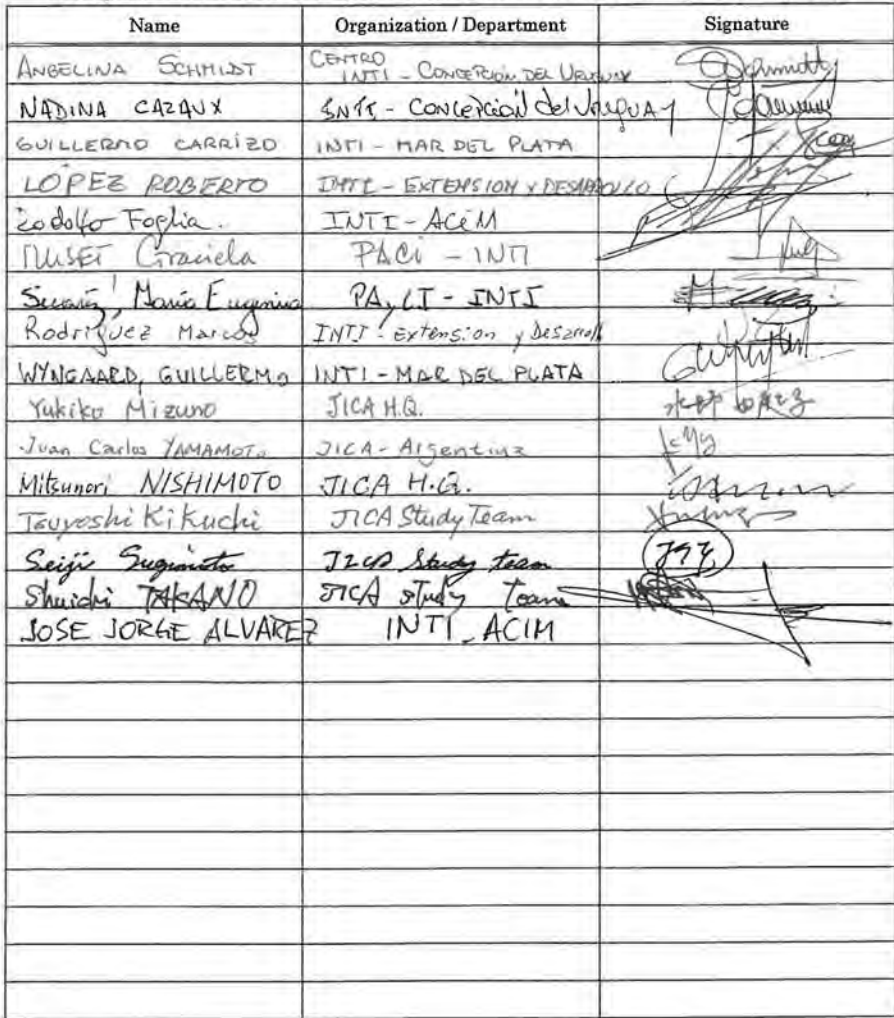 Name Organization / Department Signature
ANGELINA SCHMIDT CENTRO INTI - CONCEPCIÓN DEL URUGUAY Schmidt
NADINA CAZAUX INTI - CONCEPCIÓN del URUGUAY
GUILLERMO CARRIZO INTI - MAR DEL PLATA
LÓPEZ ROBERTO INTI - EXTENSION Y DESARROLLO
Rodolfo Foglia. INTI - ACIM
MUSET Graciela PACI - INTI
María Eugenia PAyCI - INTI
Rodríguez Marcos INTI - Extension y Desarroll
WYNGAARD, GUILLERMO INTI - MAR DEL PLATA
Yukiko Mizuno JICA H.Q. 水野
Juan Carlos YAMAMOTO JICA - Argentina
Mitsunori NISHIMOTO JICA H.Q.
Tsuyoshi Kikuchi JICA Study Team
Seiji Sugimoto JICA Study team
Shuichi TAKANO JICA study team
JOSE JORGE ALVAREZ INTI - ACIM